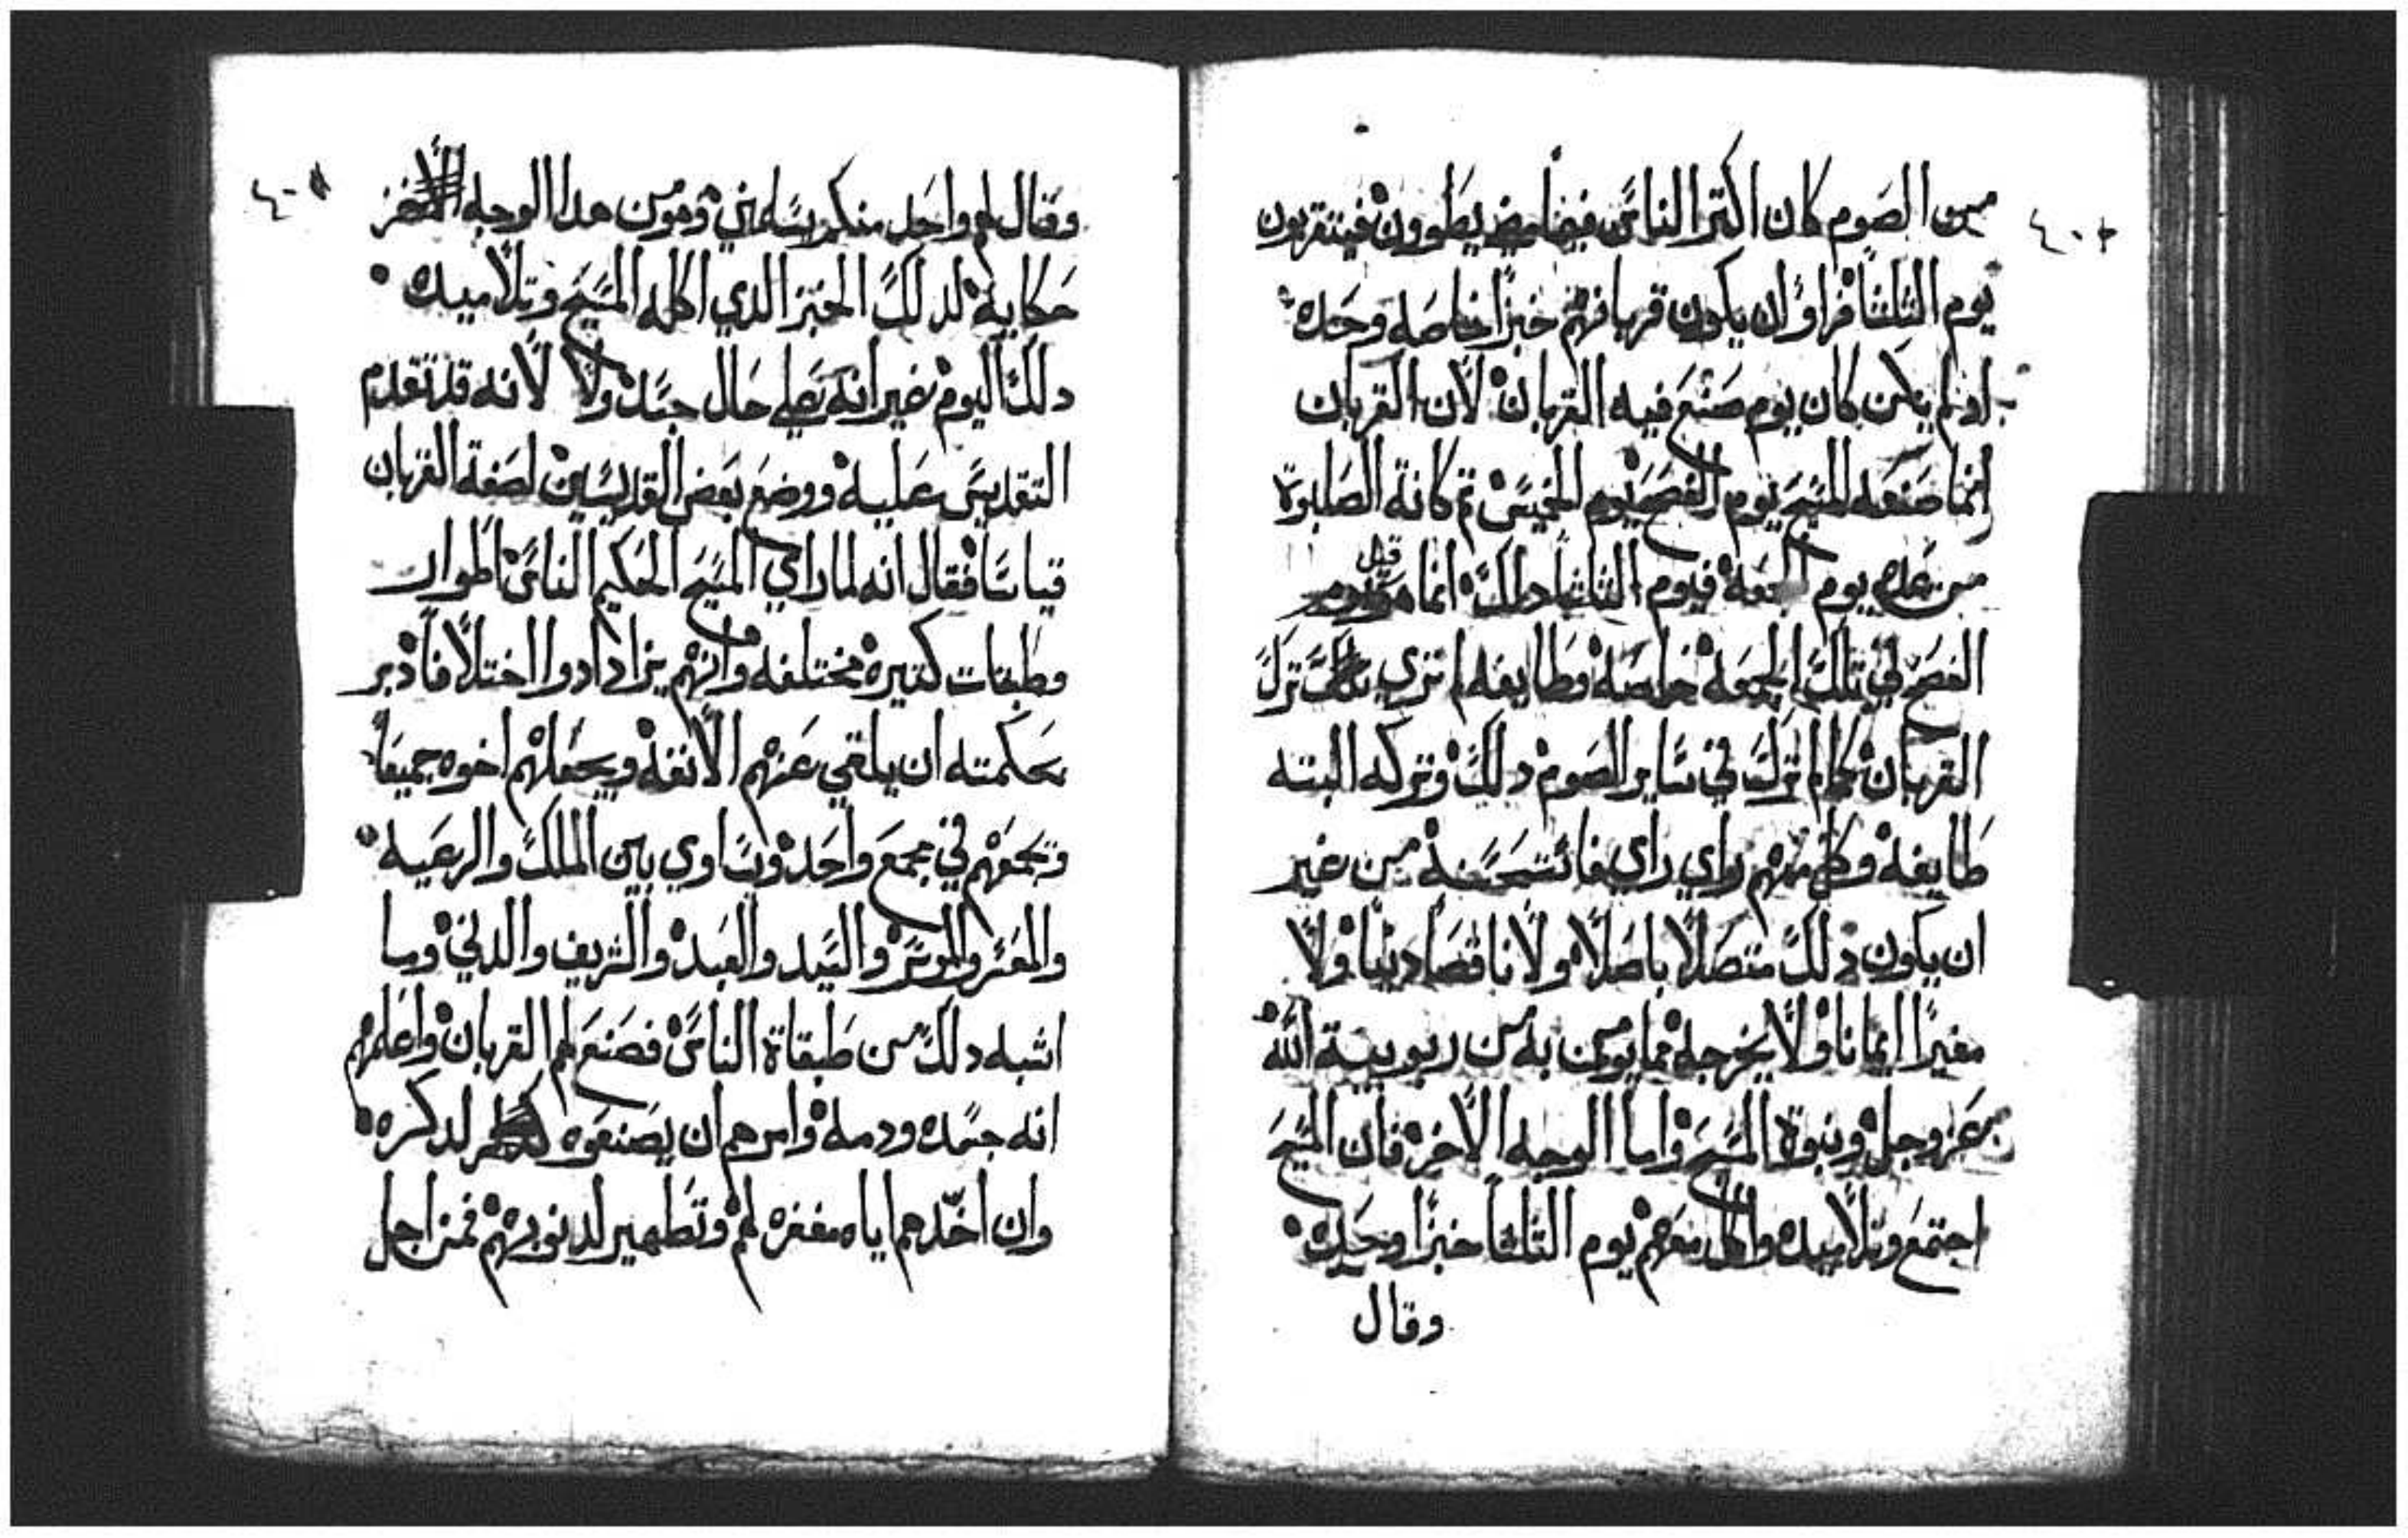 من الصوم كان اكتر الناس فيضا يطوون فيتقربون
يوم التلتا فراو ان يكون قربانهم خبزا خاصه وحده
اد لم يكن كان يوم صنع فيه القربان لان القربان
انما صنعه المسيح يوم الفصح يوم الخميس تم كانة الصلبوة
من غده يوم الجمعه فيوم التلتا دلك انما هو قبل
الفصح في تلك الجمعه خاصه وطايفه لم تري ترك
القربان كما لم ترك في ساير الصوم دلك وتركه البته
طايفه وكل منهم راي راي فاستحسنه من غير
ان يكون دلك متصلا باصلا ولا ناقصا دينا ولا
مغيرا ايمانا ولا يخرجه مما يومن به من ربوبية الله
عز وجل ونبوة المسيح واما الوجه الاخر فان المسيح
اجتمع وتلاميده واكل معهم يوم التلتا خبزا وحده
وقال
٤٠٨
وقال لهم واحد منكم يسلمني وهو من هدا الوجه الاخر
حكايه لدلك الخبز الدي اكله المسيح وتلاميده
دلك اليوم غير انه علي حال جسد ولا لانه قد تقدم
التقديس عليه ووضع بعض القديسين لصفة القربان
قياسا فقال انه لما راي المسيح الحكيم الناس اطوار
وطبقات كتيره مختلفه وانهم يزادادوا اختلافا دبر
بحكمته ان يلقي عنهم الانفه ويجعلهم اخوه جميعا
وتجمعهم في مجمع واحد وتساوي بين الملك والرعيه
والمعسر والموسر والسيد والعبد والشريف والدني وما
اشبه دلك من طبقاة الناس فصنع لهم القربان واعلمهم
انه جسده ودمه وامرهم ان يصنعوه لدكره
وان اخدهم اياه مغفره لهم وتطهير لدنوبهم فمن اجل